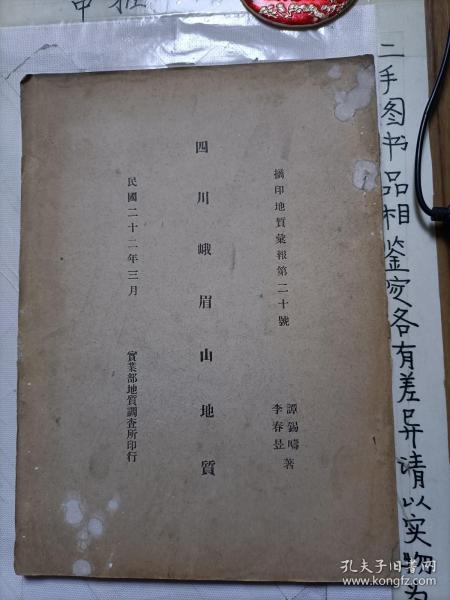 摘印地質彙報第二十號
譚錫疇
李春昱
著
四川峨眉山地質
民國二十二年三月
實業部地質調查所印行
二手图书品相鉴定各有差异请以实物为
孔夫子旧书网
www.kongfz.com